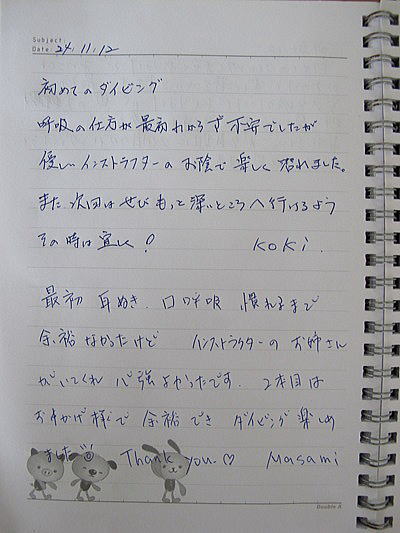 Subject
Date: 24. 11. 12
初めてのダイビング
呼吸の仕方が最初わからず不安でしたが
優しいインストラクターのお陰で楽しく潜れました。
また次回はぜひもっと深いところへ行けるよう
その時は宜しく!
KOKI.
最初 耳ぬき、口呼吸 慣れるまで
余裕なかったけど インストラクターのお姉さん
がいてくれ 心強よかったです。2本目は
おかげ様で 余裕でき ダイビング楽しめ
ました Thank you. ♡ Masami
Double A